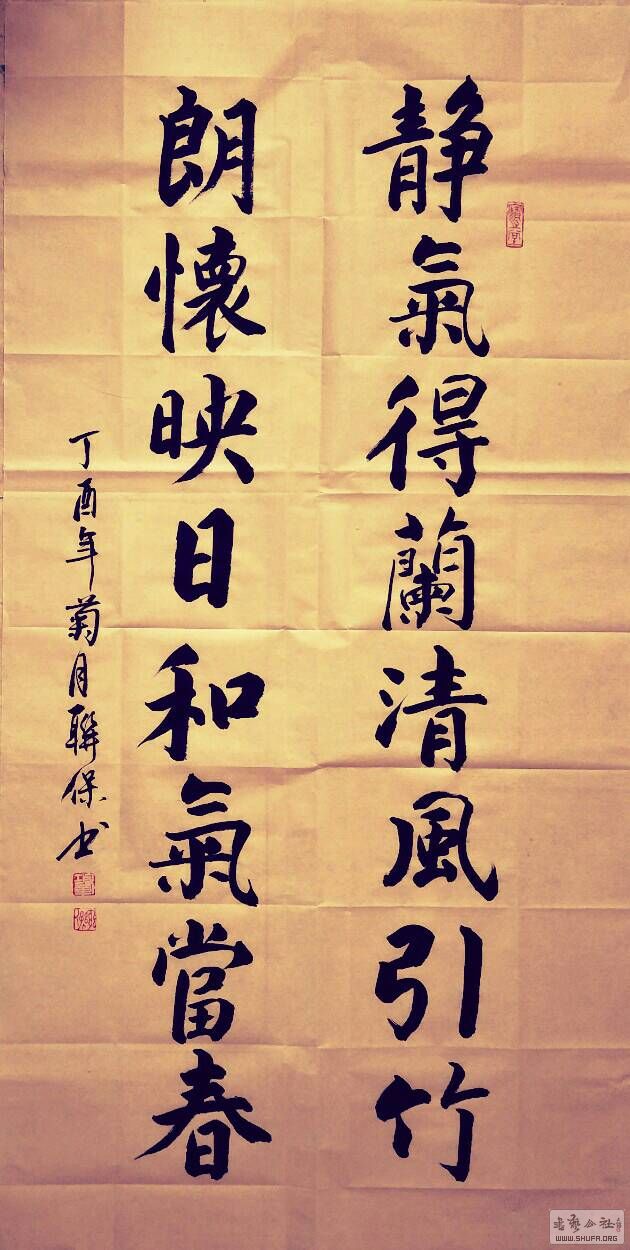 静氣得蘭清風引竹
朗懷映日和氣當春
丁酉年菊月聯保书
WWW.SHUFA.ORG